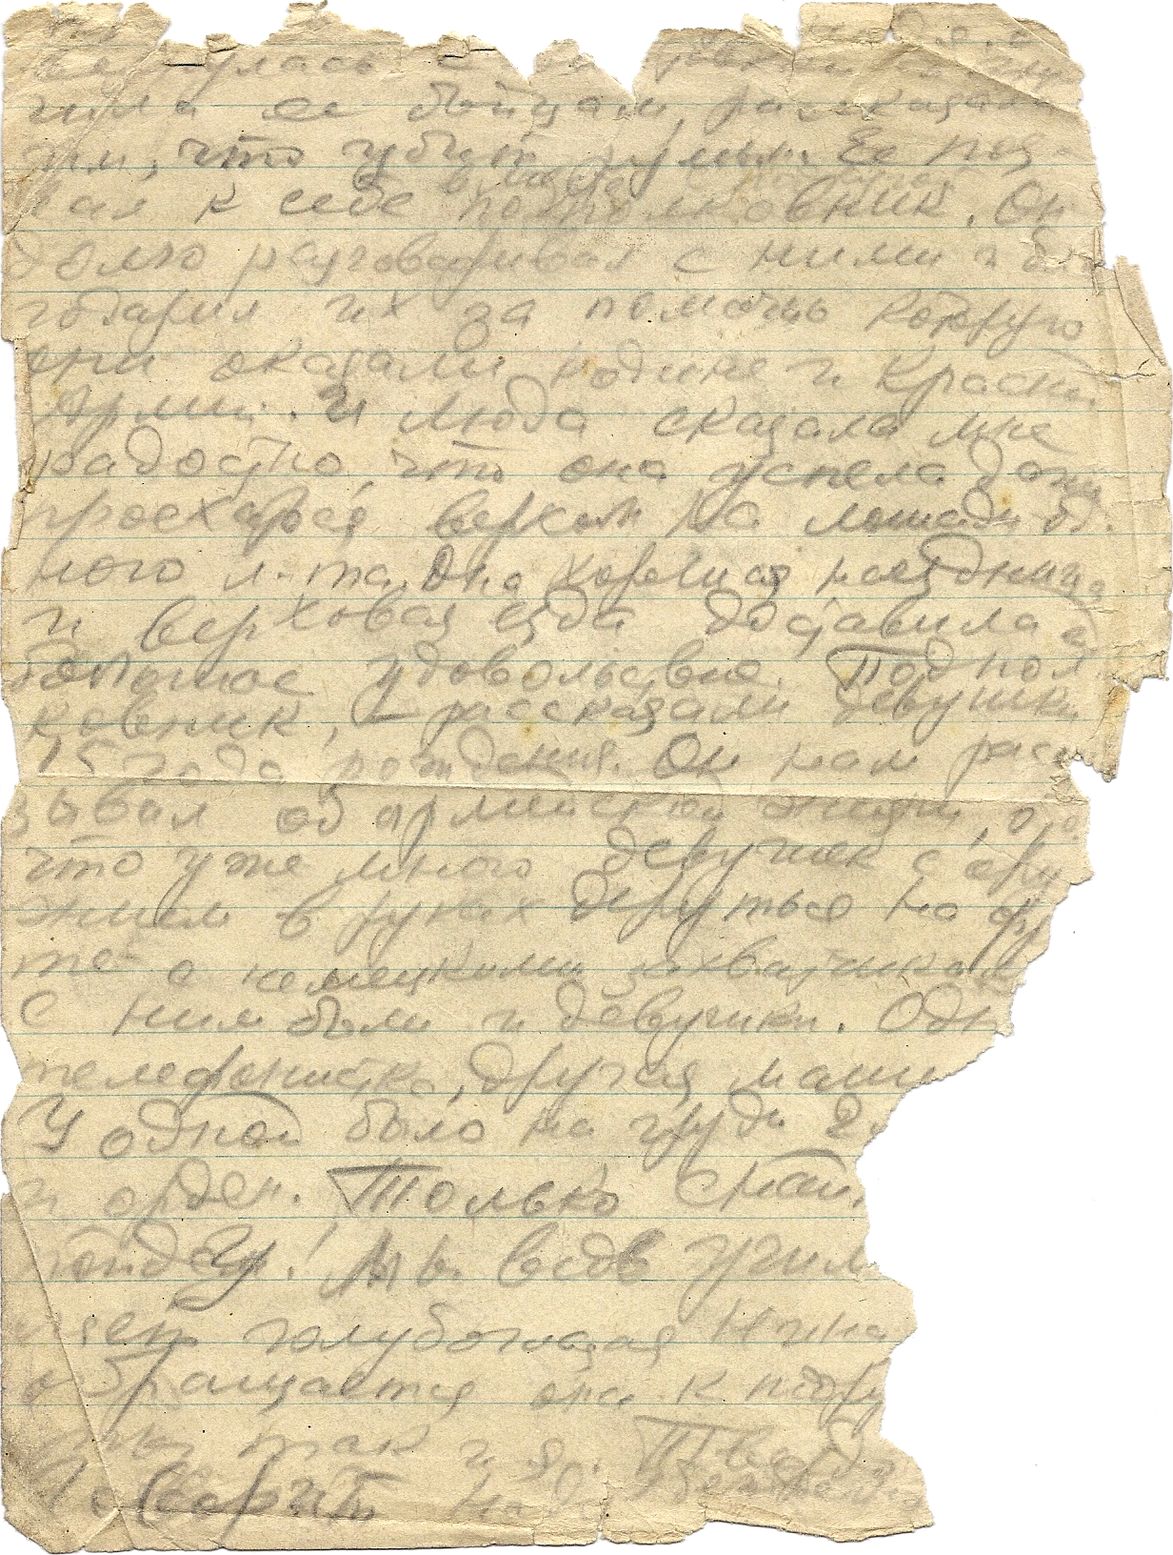 нулась с
чила ее бойцам, рассказала
им, что убит румын. Ее поз-
вал к себе подполковник. Он
долго разговаривал с ними и бла
годарил их за помощь которую
они оказали родине и Красн.
Армии. И Люда сказала мне
радостно, что она успела даже
проехаться верхом на лошади од.
ного л-та. Она хорошая наездница
и верховая езда доставила ей
большое удовольствие. Подпол
ковник, – рассказали девушки
15 года рождения. Он нам расск
зывал об армейской жизни, о
что уже много девушек с ору
жием в руках дерутся на фр
те с немецкими захватчиками
С ним были и девушки. Одн
телефонистка, другая маши
У одной было на груди 2
и орден. Только
пойдем! Мы ведь учил
голубоглазая Нина
обращается она к подру
ты так и я.
говорит надо